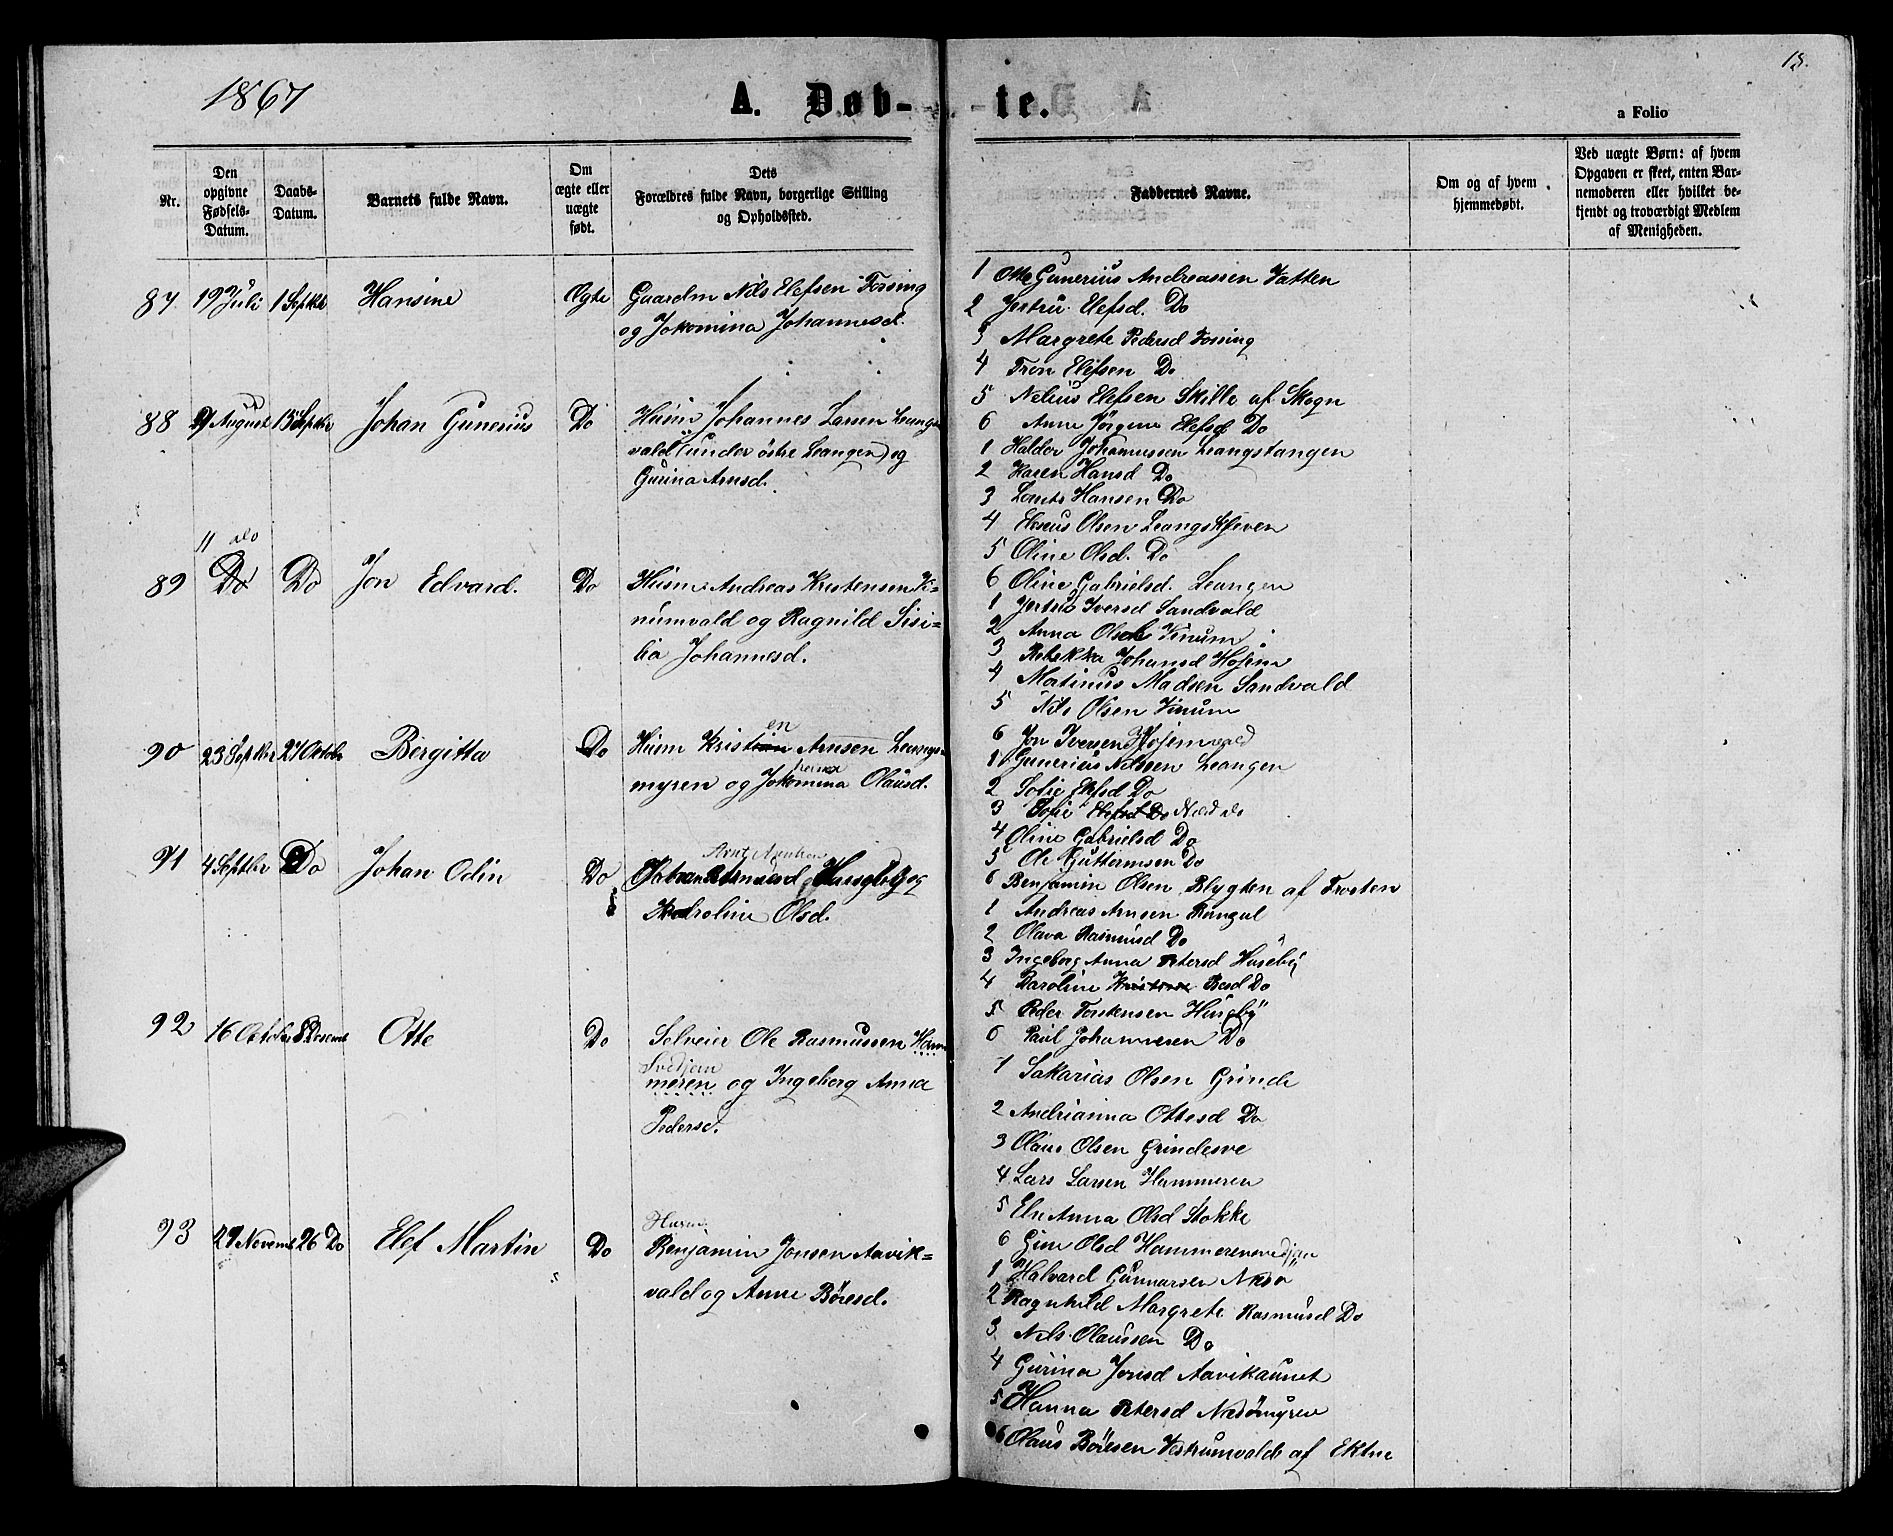 1867
A. Døb-
te.
18.
a Folio
Nr.
Den opgivne Fødsels-Datum.
Daabs-Datum.
Barnets fulde Navn.
Om ægte eller uægte født.
Dets Forældres fulde Navn, borgerlige Stilling og Opholdssted.
Faddernes Navne.
Om og af hvem hjemmedøbt.
Ved uægte Børn: af hvem Opgaven er skeet, enten Barnemoderen eller hvilket betjendt og troværdigt Medlem af Menigheden.
87 19 Juli 1 Septbr Hansine Ægte Gaardm Nils Elefsen Fossing
og Jokomina Johannesd.
1 Otte Gunerius Andreassen Vatten
2 Jertru Elefsd. Do
3 Margrete Pedersd Fossing
4 Tron Elefsen Do
5 Nelius Elefsen Skille af Skogn
6 Anne Jørgine Elefsd Do
88 9 August 15 Septbr Johan Gunerius Do Husm Johannes Larsen Leangen
vald (under østre Leangen) og
Gurina Arnsd.
1 Haldor Johannessen Leangstangen
2 Karen Hansd Do
3 Lorits Hansen Do
4 Eliseus Olsen
5 Oline Olsd. Do
6 Oline Gabrielsd. Leangen
11 do
89 Do Do Jon Edvard. Do Husm Andreas Kristensen Vi-
numvald og Ragnild Sisi-
lia Johannesd.
1 Jertru Iversd Sandvald
2 Anna Olsd Vinum
3 Rebekka Johansd Hojem
4 Martinus Madsen Sandvald
5 Nils Olsen Vinum
6 Jon Iversen Hojemvald
90 23 Septbr 27 Octobr Bergitta Do Husm Kristian en Arnsen Leangs
myren og Jokomina Olausd.
1 Gunerius Nilssen Leangen
2 Sofie Elefsd Do
3 Sofie Elefsd Do Nilsd do
4 Oline Gabrielsd Do
5 Ole Guttormsen Do
6 Benjamin Olsen Blygten af Frosten
91 4 Septbr Do Johan Odin Do
Arnt Arntsen
og
Karoline Olsd.
1 Andreas Arnsen
2 Olava Rasmusd Do
3 Ingeborg Anna Petersd Huseby
4 Karoline Do
5 Peder Torstensen Husby
6 Paul Johannesen Do
92 16 October 8 Desemb Otte Do Selveier Ole Rasmussen Ham
Svedjan
meren og Ingeborg Anna
Pedersd.
1 Sakarias Olsen Grinde
2 Andrianna Ottesd Do
3 Olaus Olsen Grindesve
4 Lars Larsen Hammeren
5 Elen Anna Olsd Stokke
6 Olsd
93 27 Novemb 26 Do Elef Martin Do
Husm
Benjamin Jonsen Aavik=
vald og Anne Børesd.
1 Halvard Gunnarsen Nesø
2 Ragnhild Margrete Rasmusd Do
3 Nils Olaussen Do
4 Gurina Jonsd Aavikaunet
5 Hanna Petersd Nesømyren
6 Olaus Børesen Veskumvald af Ektne